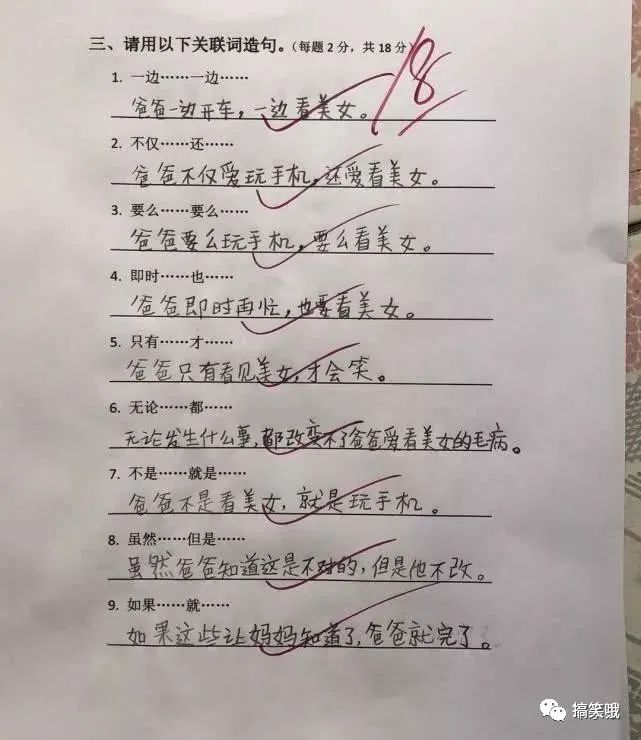 三、请用以下关联词造句。(每题2分，共18分)
18
1. 一边……一边……
爸爸一边开车，一边看美女。
2. 不仅……还……
爸爸不仅爱玩手机，还爱看美女。
3. 要么……要么……
爸爸要么玩手机，要么看美女。
4. 即时……也……
爸爸即时再忙，也要看美女。
5. 只有……才……
爸爸只有看见美女，才会笑。
6. 无论……都……
无论发生什么事，都改变不了爸爸爱看美女的毛病。
7. 不是……就是……
爸爸不是看美女，就是玩手机。
8. 虽然……但是……
虽然爸爸知道这是不对的，但是他不改。
9. 如果……就……
如果这些让妈妈知道了，爸爸就完了。
搞笑哦